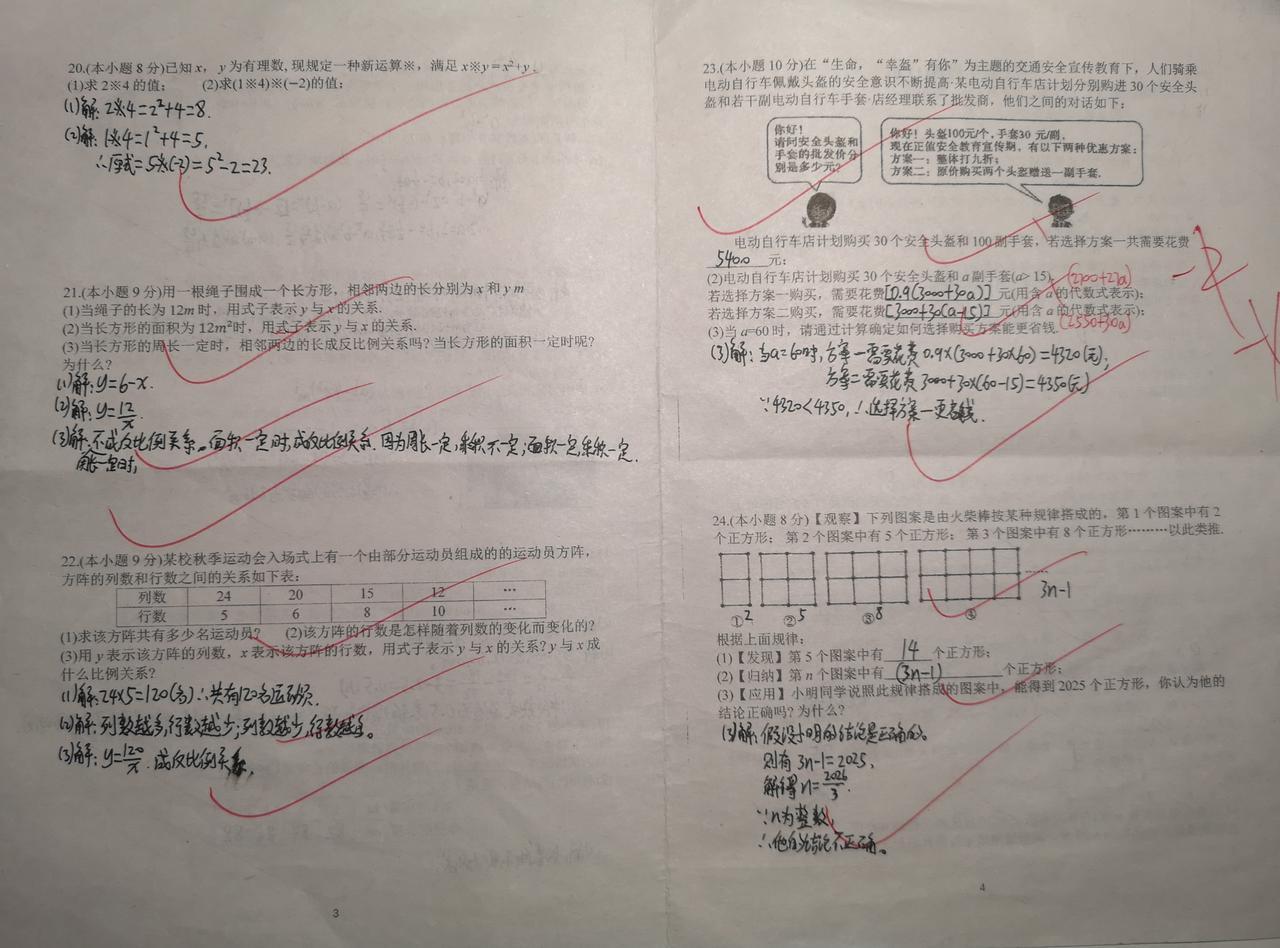 20.(本小题 8 分)已知 x，y 为有理数, 现规定一种新运算※，满足 x※y = x²+y .
(1)求 2※4 的值；	(2)求(1※4)※(−2)的值；
(1)解：2※4=2²+4=8.
(2)解：1※4=1²+4=5,
∴原式=5※(-2)=5²-2=23.
21.(本小题 9 分)用一根绳子围成一个长方形，相邻两边的长分别为 x 和 y m
(1)当绳子的长为 12m 时，用式子表示 y 与 x 的关系.
(2)当长方形的面积为 12m²时，用式子表示 y 与 x 的关系.
(3)当长方形的周长一定时，相邻两边的长成反比例关系吗? 当长方形的面积一定时呢?
为什么?
(1)解：y=6-x.
(2)解：y=12/x.
(3)解：不成反比例关系。面积一定时,成反比例关系.因为周长一定,乘积不一定;面积一定,乘积一定.
周长一定时,
22.(本小题 9 分)某校秋季运动会入场式上有一个由部分运动员组成的的运动员方阵，
方阵的列数和行数之间的关系如下表：
列数 24 20 15 12 …
行数 5 6 8 10 …
(1)求该方阵共有多少名运动员?	(2)该方阵的行数是怎样随着列数的变化而变化的?
(3)用 y 表示该方阵的列数，x 表示该方阵的行数，用式子表示 y 与 x 的关系? y 与 x 成
什么比例关系?
(1)解：24×5=120(名)∴共有120名运动员.
(2)解：列数越多,行数越少;列数越少,行数越多。
(3)解：y=120/x. 成反比例关系.
3
23.(本小题 10 分)在“生命，“幸盔”有你”为主题的交通安全宣传教育下，人们骑乘
电动自行车佩戴头盔的安全意识不断提高·某电动自行车店计划分别购进 30 个安全头
盔和若干副电动自行车手套·店经理联系了批发商，他们之间的对话如下：
你好!
请问安全头盔和
手套的批发价分
别是多少元?
你好! 头盔100元/个, 手套30 元/副,
现在正值安全教育宣传期, 有以下两种优惠方案:
方案一: 整体打九折;
方案二: 原价购买两个头盔赠送一副手套.
电动自行车店计划购买 30 个安全头盔和 100 副手套，若选择方案一共需要花费
5400 元；
(2)电动自行车店计划购买 30 个安全头盔和 a 副手套(a> 15)，(2700+27a)
若选择方案一购买，需要花费[0.9(3000+30a)]元(用含 a 的代数式表示)；
若选择方案二购买，需要花费[3000+30(a-15)]元(用含 a 的代数式表示)；
(3)当 a=60 时，请通过计算确定如何选择购买方案能更省钱. (2550+30a)
-2
(3)解：当a=60时,方案一需要花费0.9×(3000+30×60)=4320(元);
方案二需要花费3000+30×(60-15)=4350(元)
∵4320<4350,∴选择方案一更省钱.
24.(本小题 8 分)【观察】下列图案是由火柴棒按某种规律搭成的，第 1 个图案中有 2
个正方形； 第 2 个图案中有 5 个正方形； 第 3 个图案中有 8 个正方形………以此类推.
……
3n-1
① 2 ② 5 ③ 8 ④
根据上面规律：
(1)【发现】第 5 个图案中有 14 个正方形；
(2)【归纳】第 n 个图案中有 (3n-1) 个正方形；
(3)【应用】小明同学说照此规律搭成的图案中，能得到 2025 个正方形，你认为他的
结论正确吗? 为什么?
(3)解：假设小明的结论是正确的。
则有 3n-1=2025,
解得 n=2026/3.
∵n为整数,
∴他的结论不正确。
4